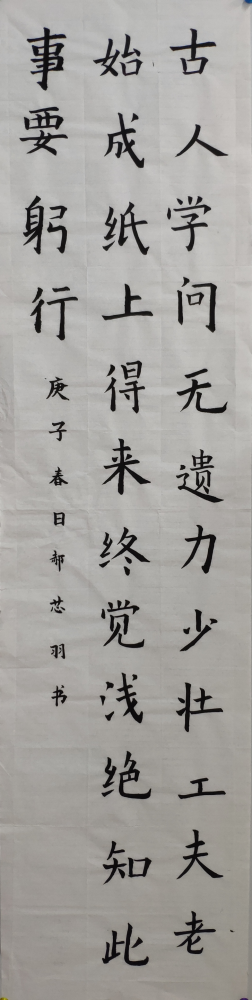 古人学问无遗力少壮工夫老
始成纸上得来终觉浅绝知此
事要躬行
庚子春日郝芯羽书